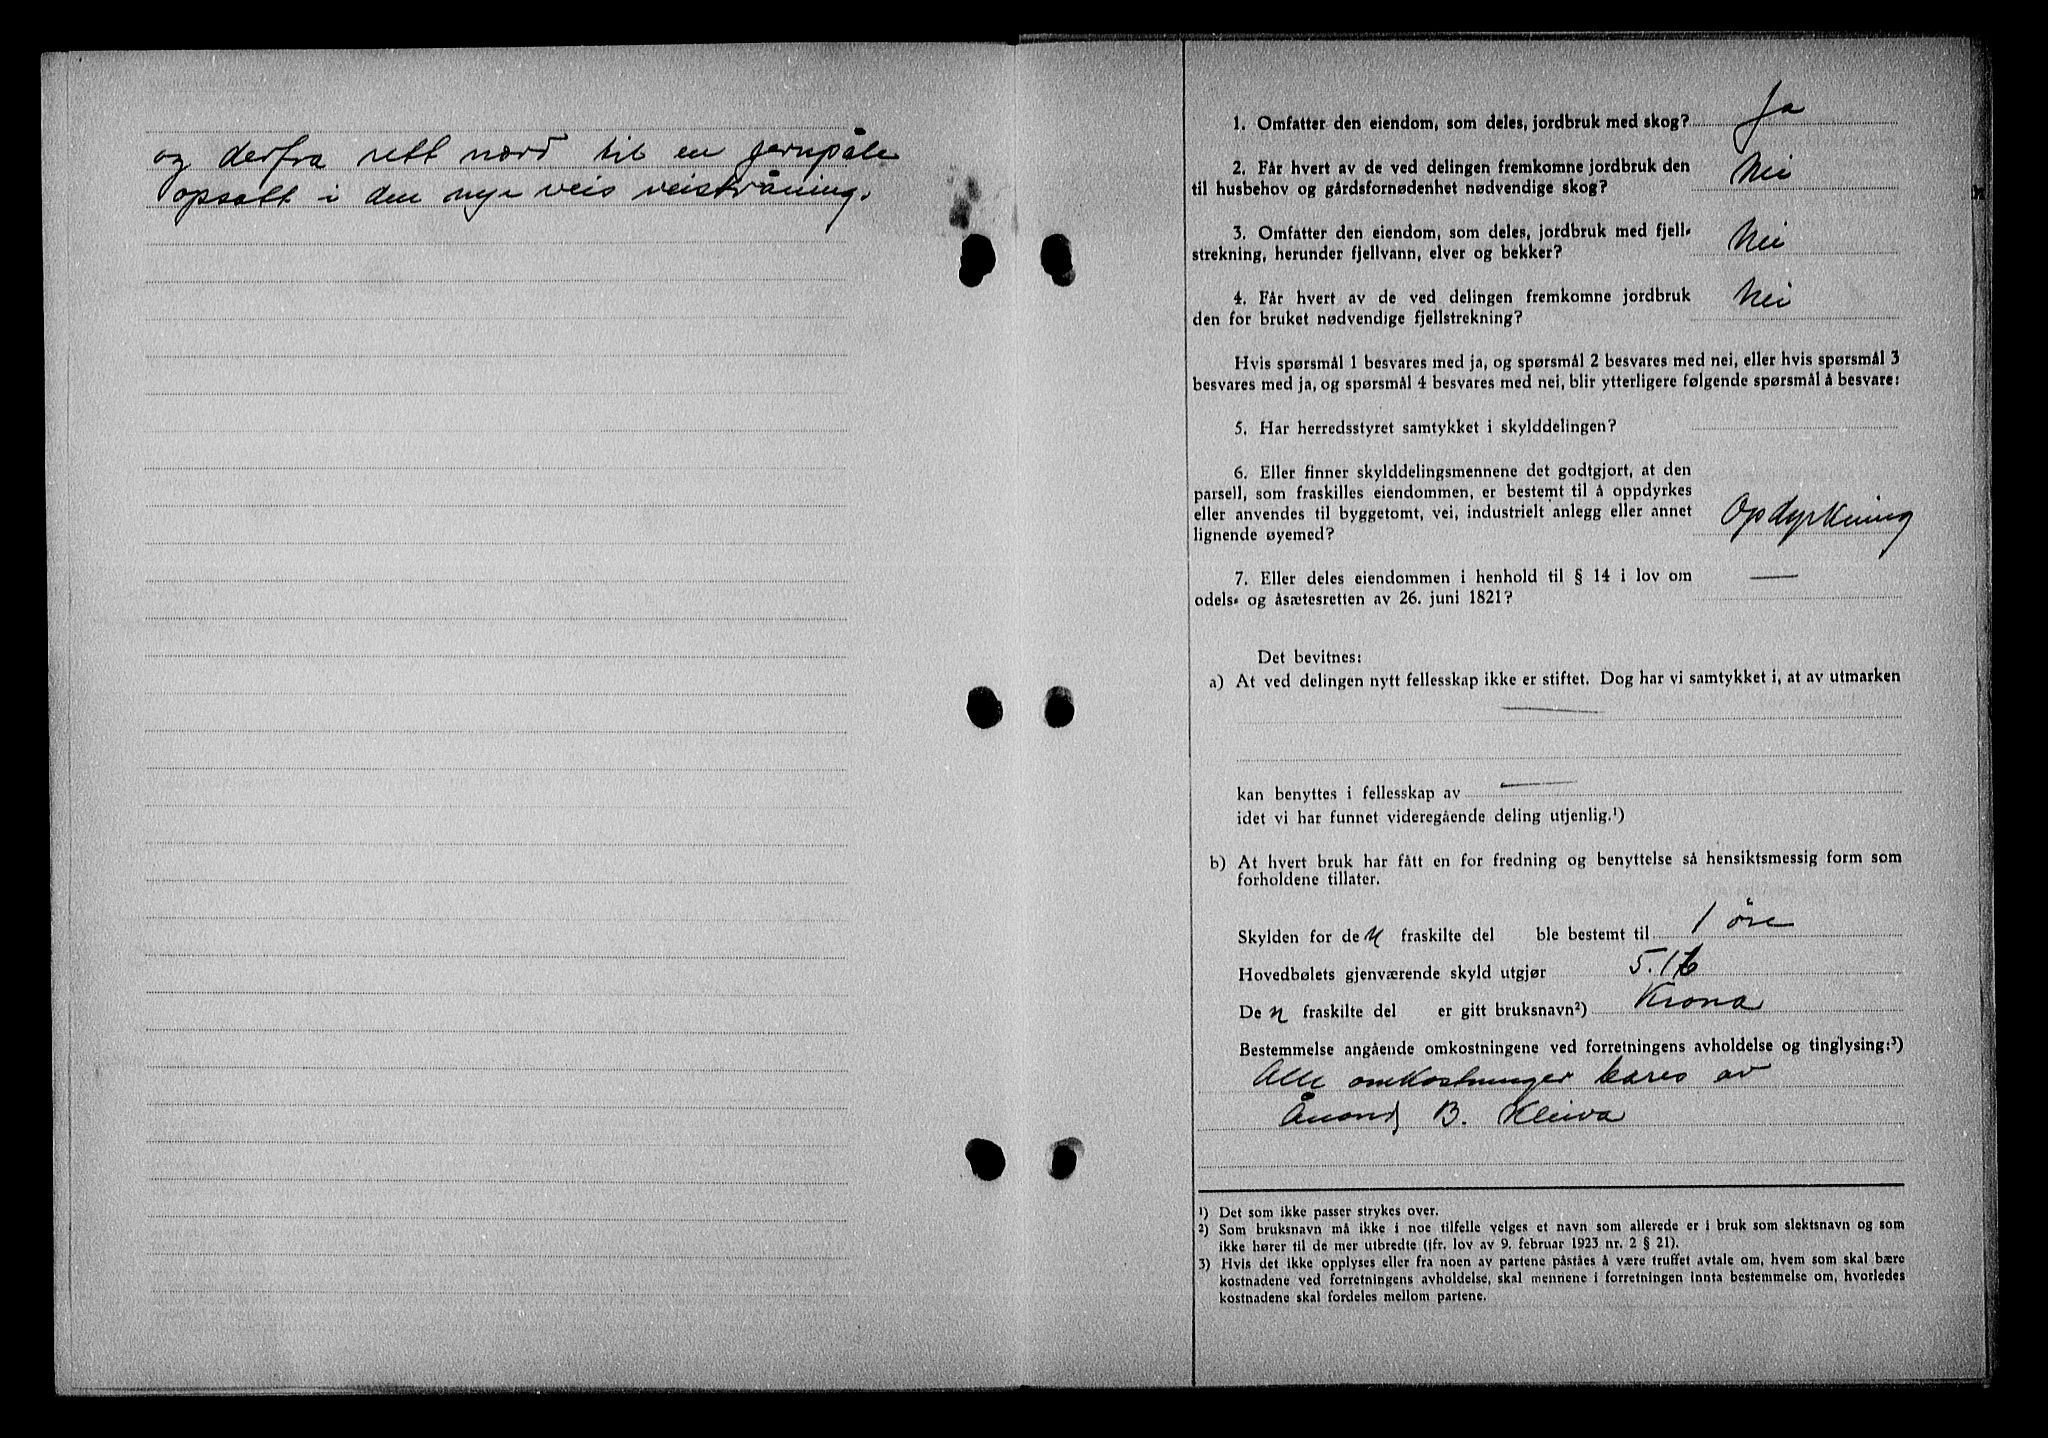 og derfra rett nord til en jernpåle
opsatt i den nye veis veistråning.
1. Omfatter den eiendom, som deles, jordbruk med skog? Ja
2. Får hvert av de ved delingen fremkomne jordbruk den
til husbehov og gårdsfornødenhet nødvendige skog? Nei
3. Omfatter den eiendom, som deles, jordbruk med fjell-
strekning, herunder fjellvann, elver og bekker? Nei
4. Får hvert av de ved delingen fremkomne jordbruk
den for bruket nødvendige fjellstrekning? Nei
Hvis spørsmål 1 besvares med ja, og spørsmål 2 besvares med nei, eller hvis spørsmål 3
besvares med ja, og spørsmål 4 besvares med nei, blir ytterligere følgende spørsmål å besvare:
5. Har herredsstyret samtykket i skylddelingen?
6. Eller finner skylddelingsmennene det godtgjort, at den
parsell, som fraskilles eiendommen, er bestemt til å oppdyrkes
eller anvendes til byggetomt, vei, industrielt anlegg eller annet
lignende øyemed? Opdyrkning
7. Eller deles eiendommen i henhold til § 14 i lov om
odels- og åsætesretten av 26. juni 1821? —
Det bevitnes:
a) At ved delingen nytt fellesskap ikke er stiftet. Dog har vi samtykket i, at av utmarken
—
kan benyttes i fellesskap av —
idet vi har funnet videregående deling utjenlig.¹)
b) At hvert bruk har fått en for fredning og benyttelse så hensiktsmessig form som
forholdene tillater.
Skylden for den fraskilte del ble bestemt til 1 öre
Hovedbølets gjenværende skyld utgjør 5.16
Den fraskilte del er gitt bruksnavn²) Krona
Bestemmelse angående omkostningene ved forretningens avholdelse og tinglysing:³)
Alle omkostninger bæres av
Ånond B. Kleiva
¹) Det som ikke passer strykes over.
²) Som bruksnavn må ikke i noe tilfelle velges et navn som allerede er i bruk som slektsnavn og som
ikke hører til de mer utbredte (jfr. lov av 9. februar 1923 nr. 2 § 21).
3) Hvis det ikke opplyses eller fra noen av partene påståes å være truffet avtale om, hvem som skal bære
kostnadene ved forretningens avholdelse, skal mennene i forretningen innta bestemmelse om, hvorledes
kostnadene skal fordeles mellom partene.